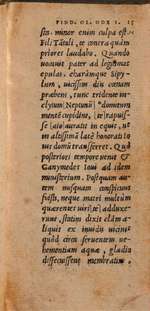 PIND. OL. ODE I. 15
sin. minor enim culpa est
Fili Tātali, te contra quàm
priores laudabo. Quando
vocauit pater ad legitimas
epulas, charámque Sipy-
lum, vicissim diis cœnam
præbens, tunc tridente in-
clytum [Neptunū] domitum
mente cupidine, [te] rapuis-
se [aio] auratis in equis, vt
in altissimā latè honorati Io
uis domū transferret. Quò
posteriori tempore venit &
Ganymedes Ioui ad idem
ministerium. Postquam au-
tem nusquam conspicuus
fuisti, neque matri multùm
quærentes viri te adduxe-
runt, statim dixit clàm a-
liquis ex inuidis vicinis
quòd circa feruentem ve-
hementiam aquæ, gladio
dissecuissent membratim.